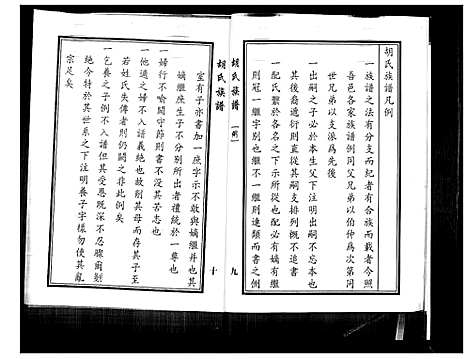 胡氏族譜凡例
一族譜之法有分支而紀者有合族而載者今照
吾邑各家族譜例同父兄弟以伯仲為次第同
世兄弟以支派為先後
一出嗣之子於本生父下注明出嗣不忘本也
其後裔遞衍則直從其嗣支排列概不追溯
一配氏繫於各名之下示統於所也配必有嫡有繼
則冠一繼字別也繼不一則連類而書之側
胡氏族譜 九
胡氏族譜 十
室有子亦書加一庶字示不敢與嫡繼並也
一嫡繼庶生子不分別所出者禮統於一尊也
一婦行不喻閫守節則書不没其苦志也
一他適之婦不入譜義絶也故削其母而存其子
若姓氏失傳者則仍闕之非此例矣
一乞養之子例不入譜但其受恩既深不忍驟爾懸
絶今特於其世系之下注明養子字樣勿使其亂
宗足矣